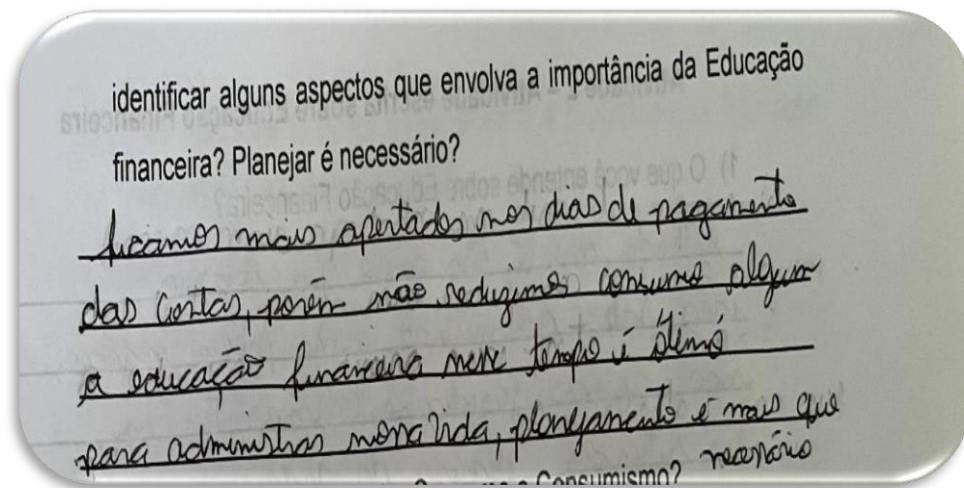 identificar alguns aspectos que envolva a importância da Educação
financeira? Planejar é necessário?
ficamos mais apertados nos dias de pagamento
das contas, porém não reduzimos consumo algum
a educação financeira nesse tempo é ótimo
para administrar nossa vida, planejamento é mais que
necessário
Consumismo?